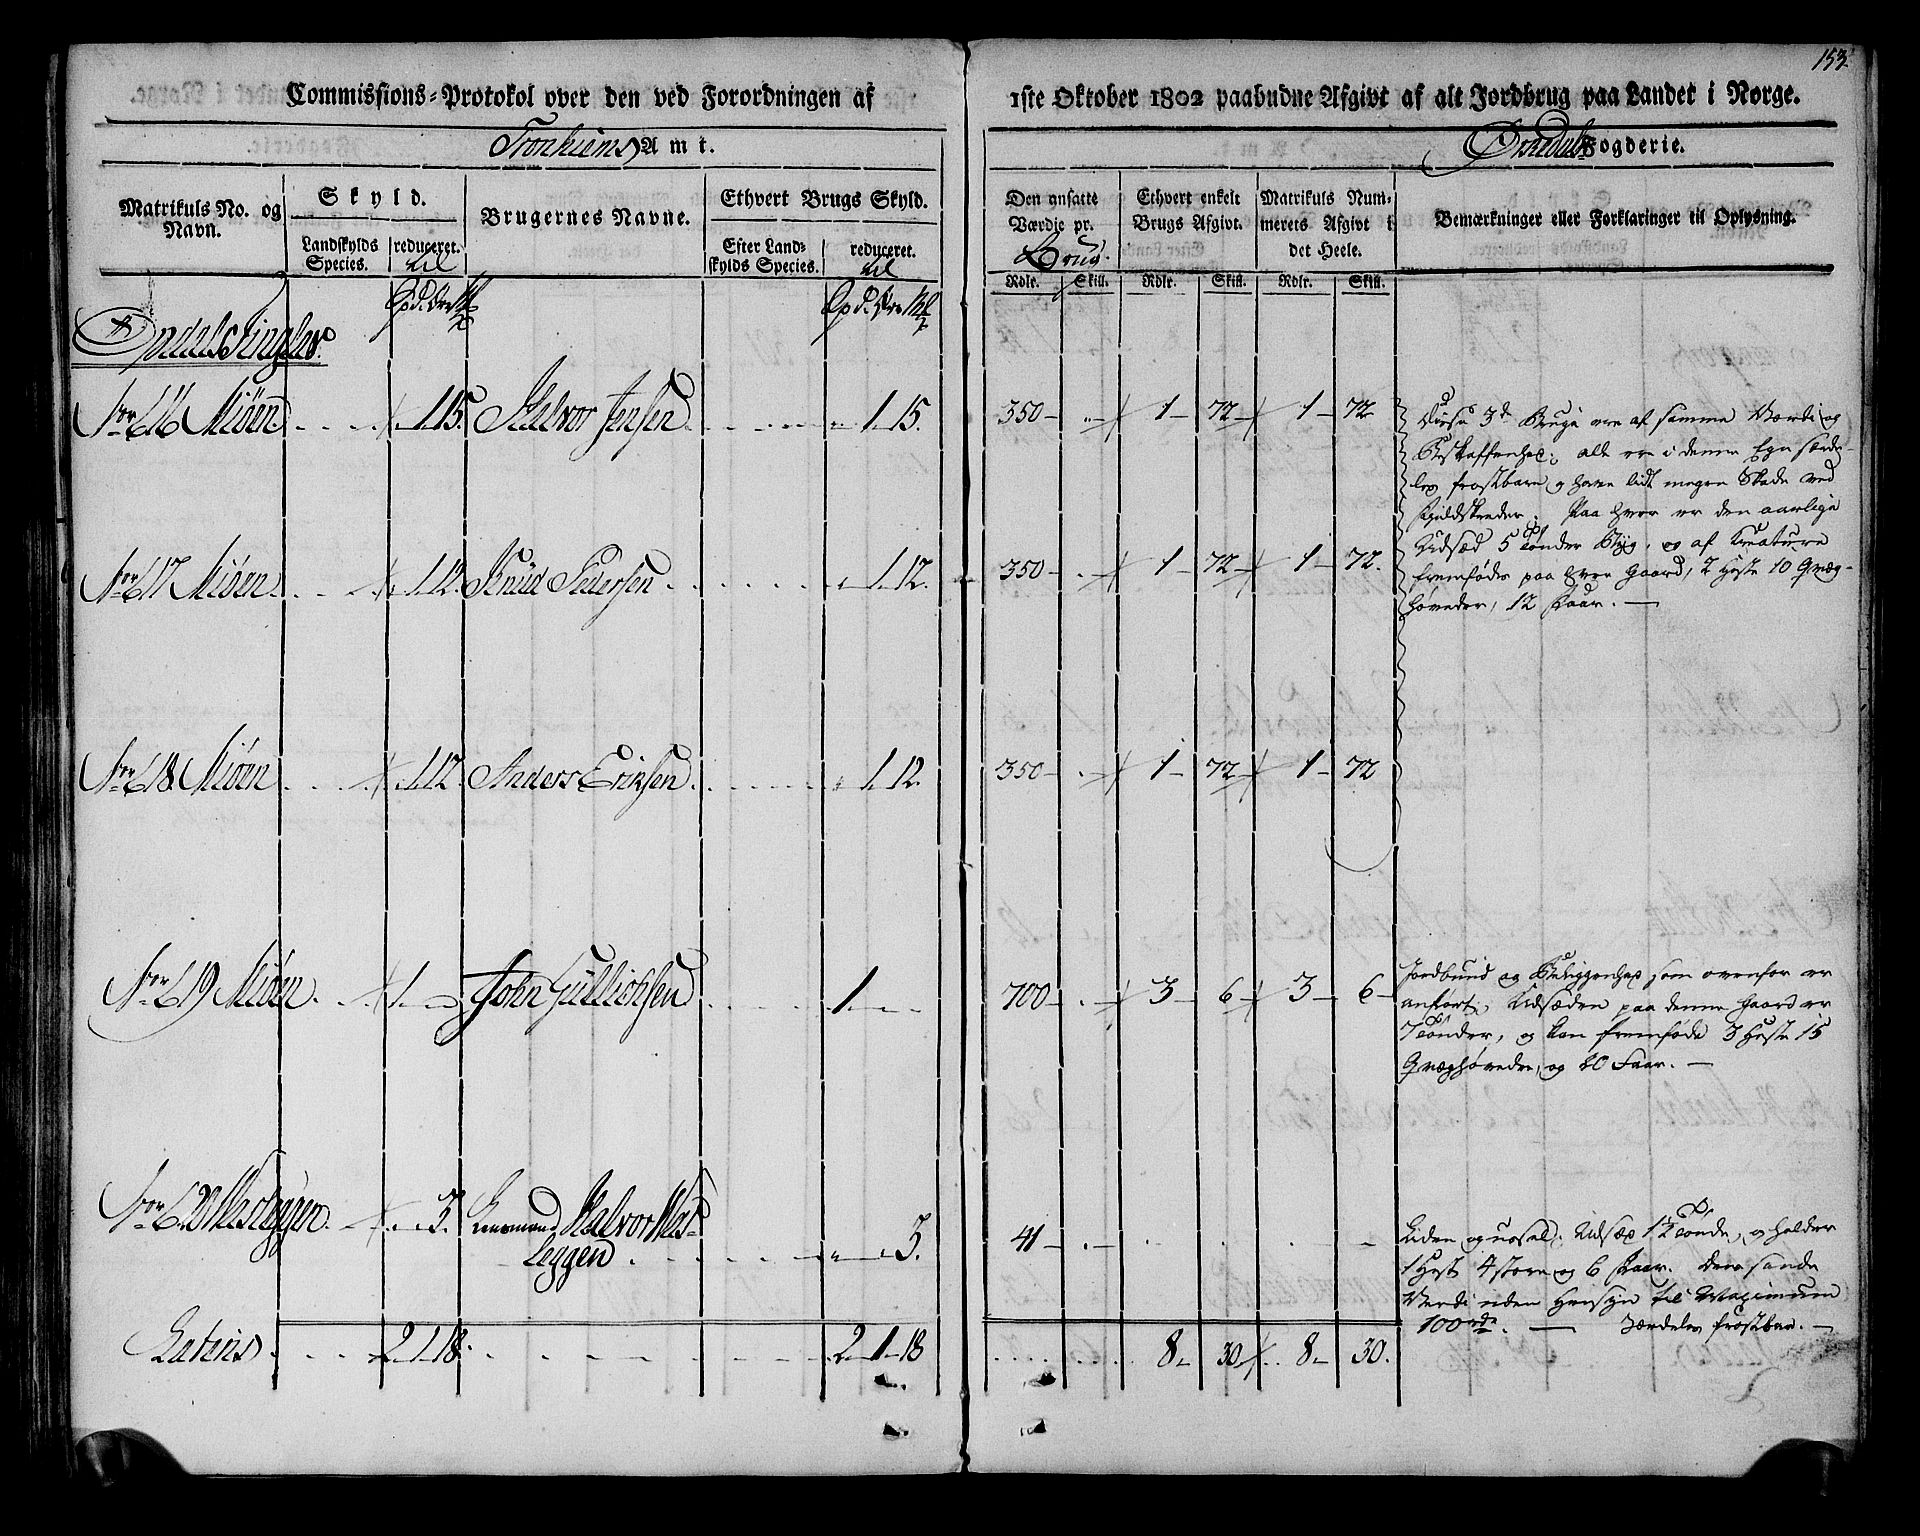 153.
Commissions-Protokol over den ved Forordningen af 1ste Oktober 1802 paabudne Afgivt af alt Jordbrug paa Landet i Norge.
Tronhiems Amt. Ørkedals Fogderie.
Matrikuls No. og Navn.
Skyld.
Landskylds Species. reduceret. til
Brugernes Navne.
Ethvert Brugs Skyld.
Efter Landskylds Species. reduceret. til
Den ansatte Værdie pr. Brug.
Ethvert enkelt Brugs Afgivt.
Matrikuls Nummerets Afgivt i det Heele.
Bemærkninger eller Forklaringer til Oplysning.
Rdlr. Skill. Rdlr. Skill. Rdlr. Skill.
Opdals Tinglav.
No 616 Miöen 1. 15. Halvor Jensen 1. 15. 350 1 72 1 72
Disse 3de Brug ere af samme Værdi og
Beskaffenhed; alle ere i denne Egn særde-
les frostbare og have lidt megen Skade ved
. Paa hver er den aarlige
Udsæd 5 Tønder Byg, og af Creature
fremfødes paa hver Gaard, 2 Heste 10 Qvæg-
høveder, 12 Faar. —
No 617 Miöen 1. 12. Knud Pedersen 1. 12. 350 1 72 1 72.
No 618 Miöen 1. 12. Anders Eriksen 1. 12. 350 1 72 1 72
No 619 Miöen 1 John Gullichsen 1 700 3 6 3 6
Jordbund og Beliggenhed som ovenfor er
anført, Udsæden paa denne Gaard er
7 Tønder, og kan fremføde 3 Heste 15
Qvæghøveder, og 20 Faar. —
No 620 Mesleggen 3. Lensmand Halvor Mes-
leggen 3. 41
Liden og ussel. Udsæd 1½ Tønde, og holder
1 Hest 4 store og 6 Faar. Den sande
Værdi uden Hensyn til Maximum
100 rdr. — Særdeles frostbar. —
Lateris 2 1 18 2 1 18 8 30 8 30.